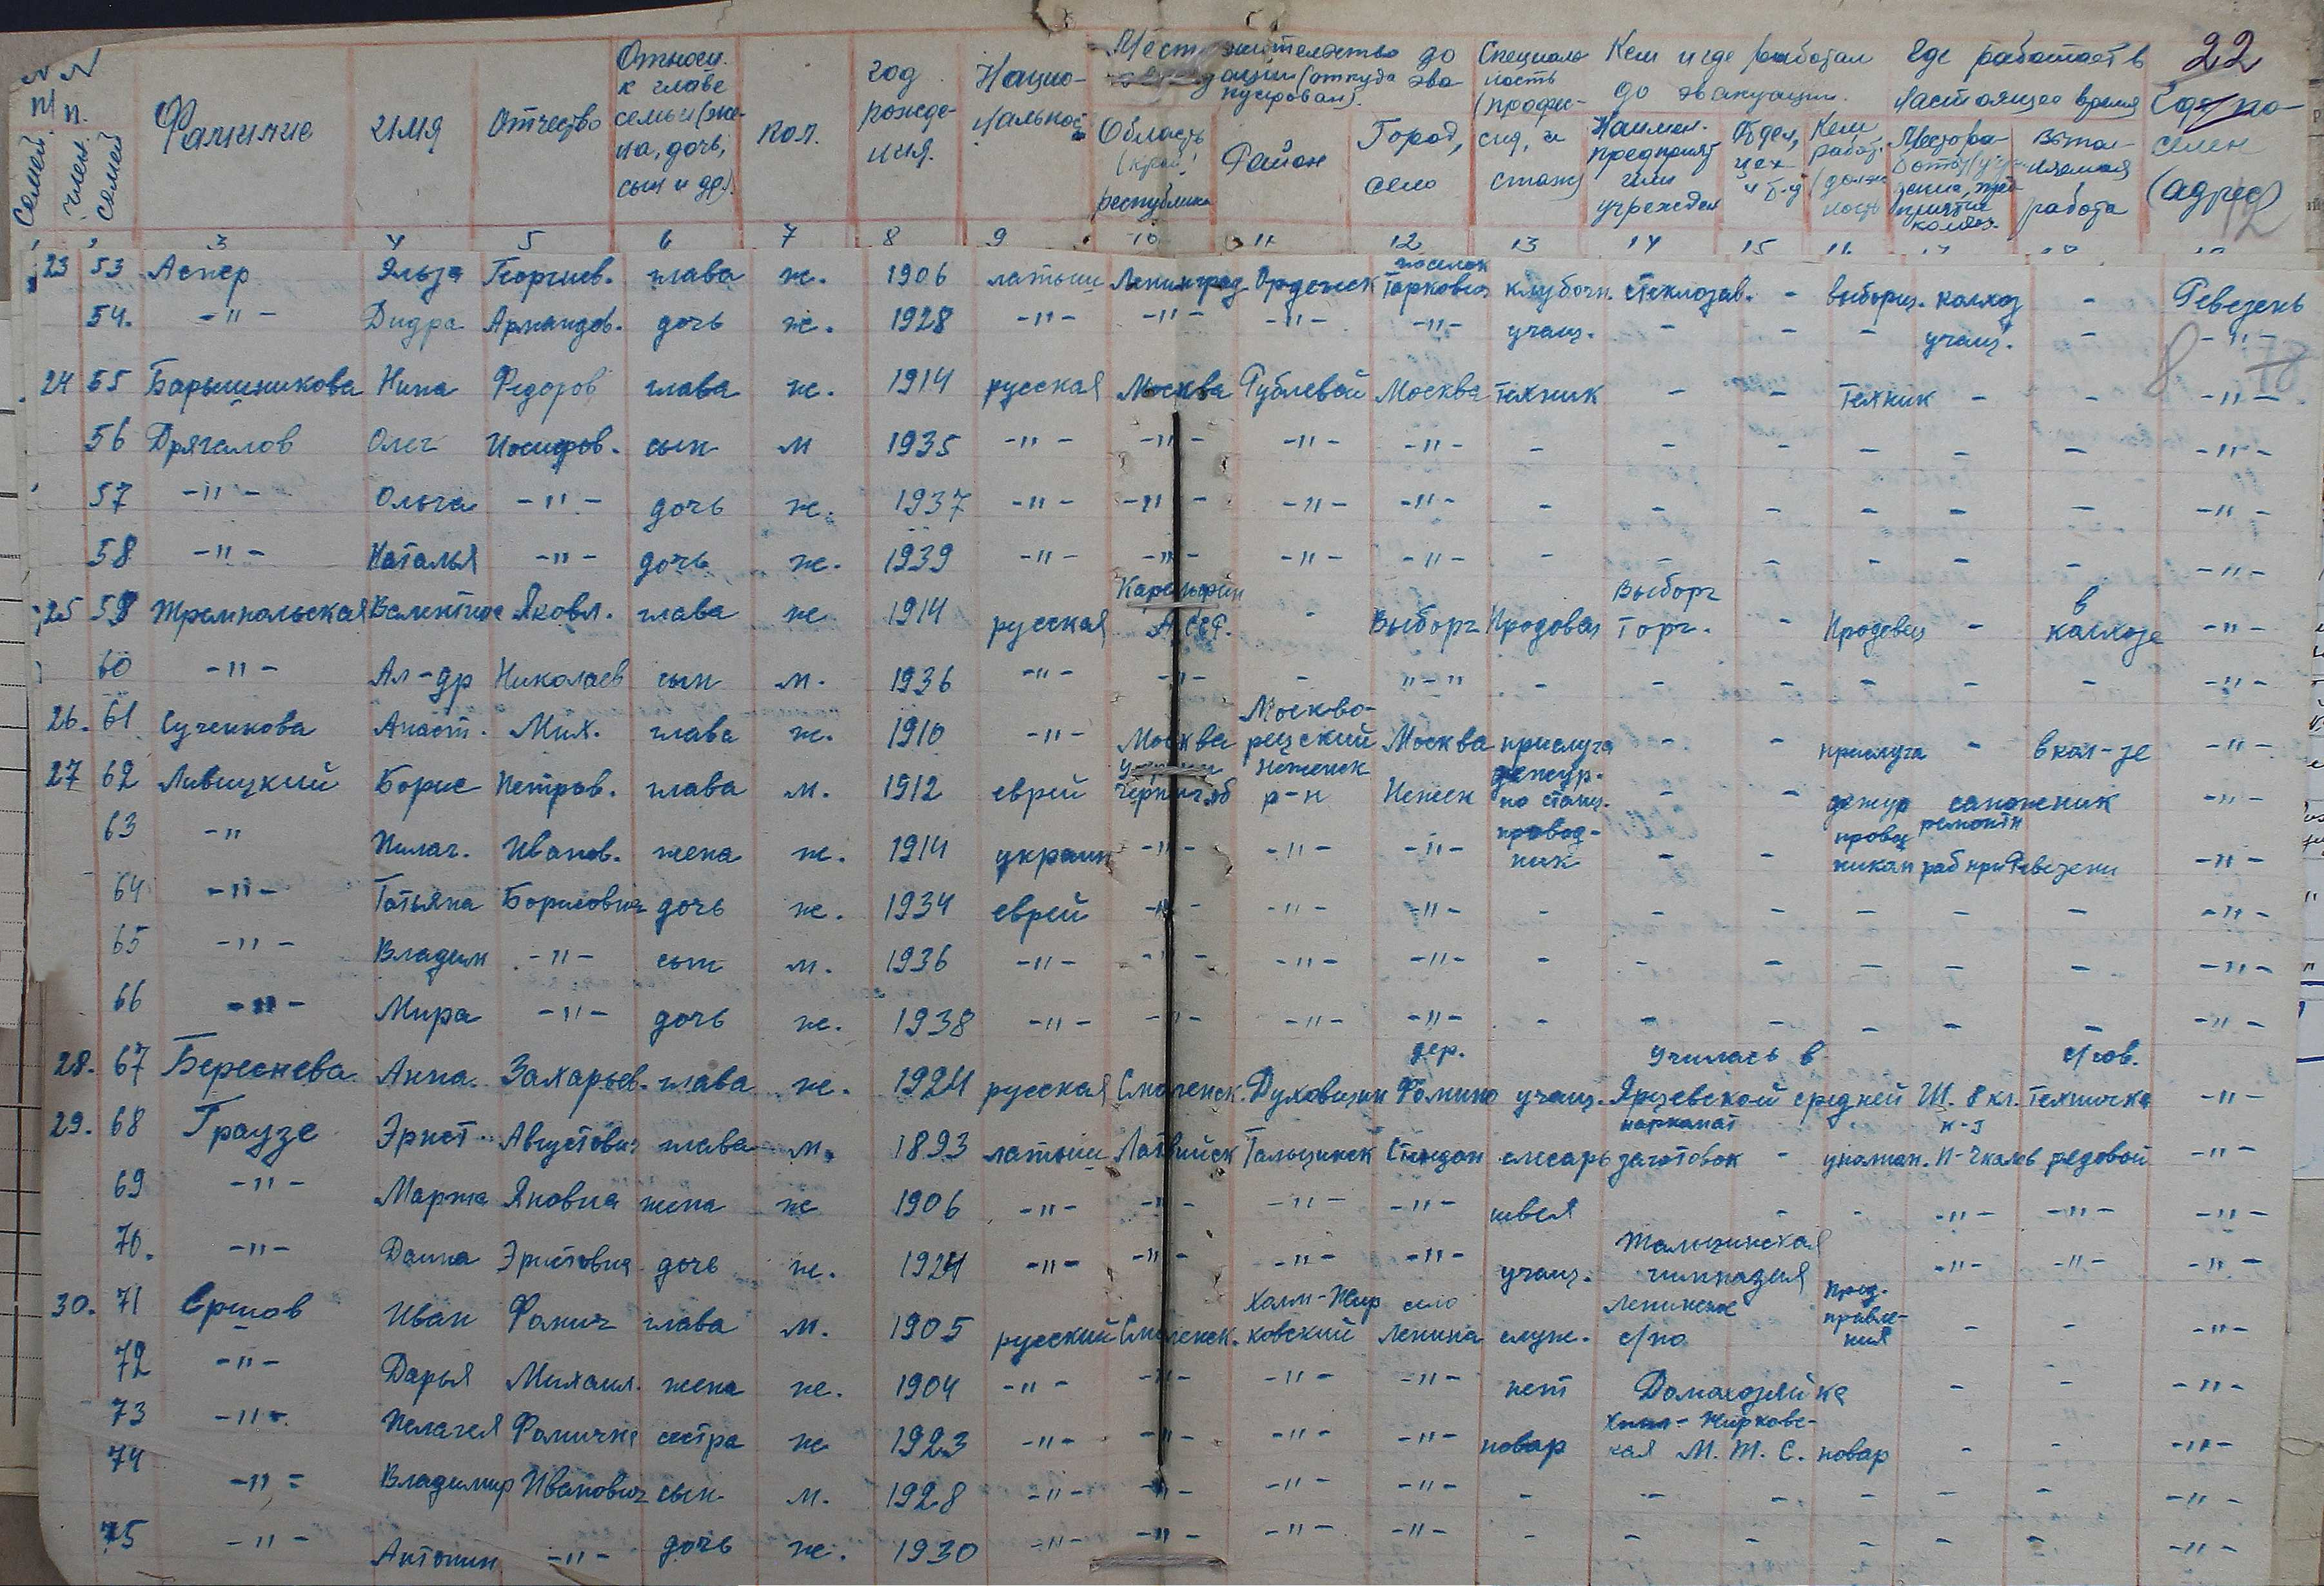 22
№ № п/п.
семей
член. семей
Фамилие
имя
Отчество
Относи. к главе семьи (жена, дочь, сын и др.).
пол.
год рождения.
Националь­ность
Место жительство до эвакуации (откуда эвакуирован).
Область (край) республика
Район
Город, село
Специальность (профессия, и стаж)
Кем и где работал до эвакуации.
Наимен. предприят или учрежден
Отдел, цех и т.д
Кем работ. (должность
Где работает в настоящее время
выполняемая работа
Где поселен (адрес)
3 4 5 6 7 8 9 10 11 12 13 14 15
23 53 Аспер Эльза Георгиев. глава ж. 1906 латыш Ленинград Ордежск поселок Торкович клубочн. стеклозав. - выборщ. колхоз - Ревезень
54. -"- Дидра Армандов. дочь ж. 1928 -"- -"- -"- -"- учащ. - - - учащ. - -"-
24 55 Барышникова Нина Федоров глава ж. 1914 русская Москва Рублевой Москва техник - - техник - - -"-
56 Дрягалов Олег Иосифов. сын м 1935 -"- -"- -"- -"- - - - - - - -"-
57 -"- Ольга -"- дочь ж. 1937 -"- -"- -"- -"- - - - - - - -"-
58 -"- Наталья -"- дочь ж. 1939 -"- -"- -"- -"- - - - - - - -"-
25 59 Трампольская Валентина Яковл. глава ж 1914 русская Карелофин АССР. - Выборг Продовец Выборг Торг. - Продовец - в колхозе -"-
60 -"- Ал-др Николаев сын м. 1936 -"- -"- - "-" - - - - - - -"-
26. 61 Сученкова Анаст. Мих. глава ж. 1910 -"- Москва Москворецский Москва прислуга - - прислуга - в кол-зе -"-
27 62 Ливицкий Борис Петров. глава м. 1912 еврей Чернигоб Неженск р-н Нежен дежур. по станц. - - дежур сапожник -"-
63 -" Пилаг. Иванов. жена ж. 1914 украин -"- -"- -"- проводник - - провод ником ремонтн раб при Ревезени -"-
64 -"- Татьяна Борисовна дочь ж. 1934 еврей -"- -"- -"- - - - - - - -"-
65 -"- Владим -"- сын м. 1936 -"- -"- -"- -"- - - - - - - -"-
66 -"- Мира -"- дочь ж. 1938 -"- -"- -"- -"- - - - - - - -"-
28. 67 Береснева Анна Захарьев. глава ж. 1924 русская Смоленск. Духовщин дер. Фомино учащ. училась в Ярцевской средней Ш. 8 кл. с/сов. Техничка -"-
29. 68 Граузе Эрнст Августович глава м. 1893 латыш Латвийск Тальцинск слесарь заготовок - к-з И-Чкалов редовой -"-
69 -"- Марта Яновна жена ж 1906 -"- -"- -"- -"- швея - - -"- -"- -"-
70. -"- Даина Эрнстовна дочь ж. 1924 -"- -"- -"- -"- учащ. Тальцинская гимназия -"- -"- -"-
30. 71 Ершов Иван Фомич глава м. 1905 русский Смоленск. Холм-Жирковский село Ленина служ. Ленинское с/по пред. правления - - -"-
72 -"- Дарья Михаил. жена ж. 1904 -"- -"- -"- -"- нет Домохозяйка - - -"-
73 -"- Пелагея Фомична сестра ж 1923 -"- -"- -"- -"- повар Холм-Жирковская М.Т.С. повар - - -"-
74 -"- Владимир Иванович сын м. 1928 -"- -"- -"- -"- - - - - - - -"-
75 -"- Антонин -"- дочь ж. 1930 -"- -"- -"- -"- - - - - - - -"-